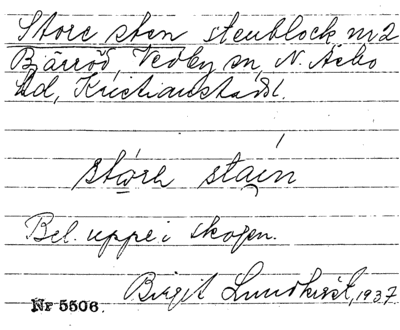 Store sten stenblock nr 2
Bärröd, Vedby sn, N. Åsbo
hd, Kristianstads l.
stórə stáin
Bel. uppe i skogen.
Birgit Lundkvist, 1937
Nr 5506.